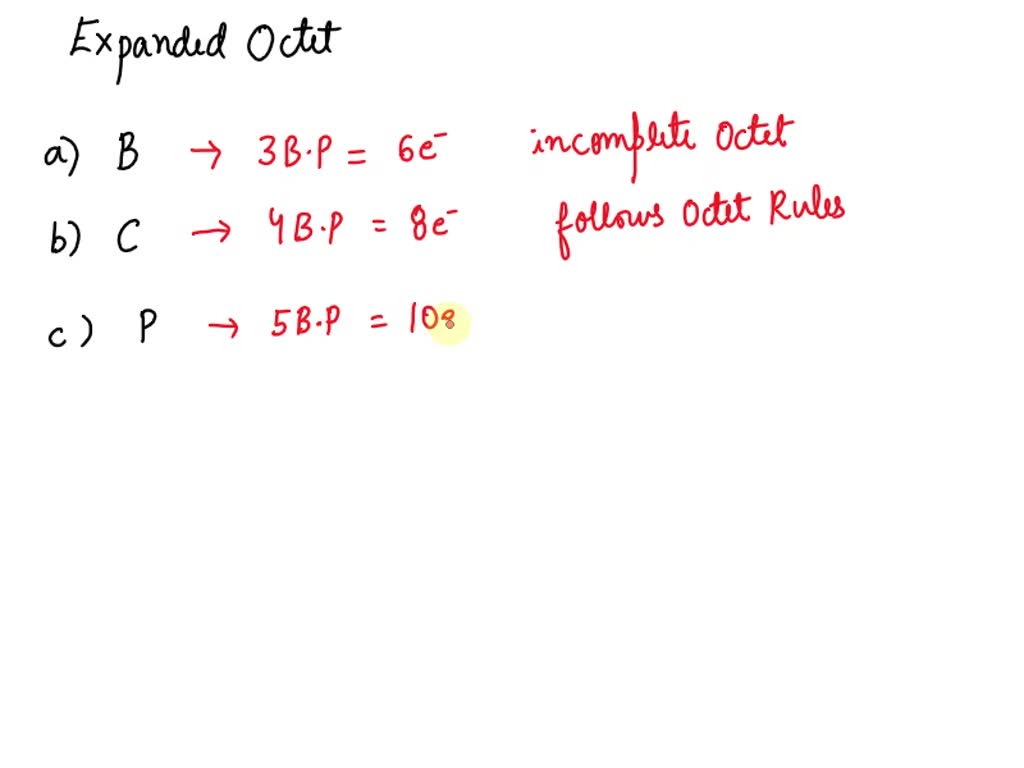 Expanded Octet
a) B → 3B.P = 6e⁻ incomplete Octet
b) C → 4B.P = 8e⁻ follows Octet Rules
c) P → 5B.P = 10